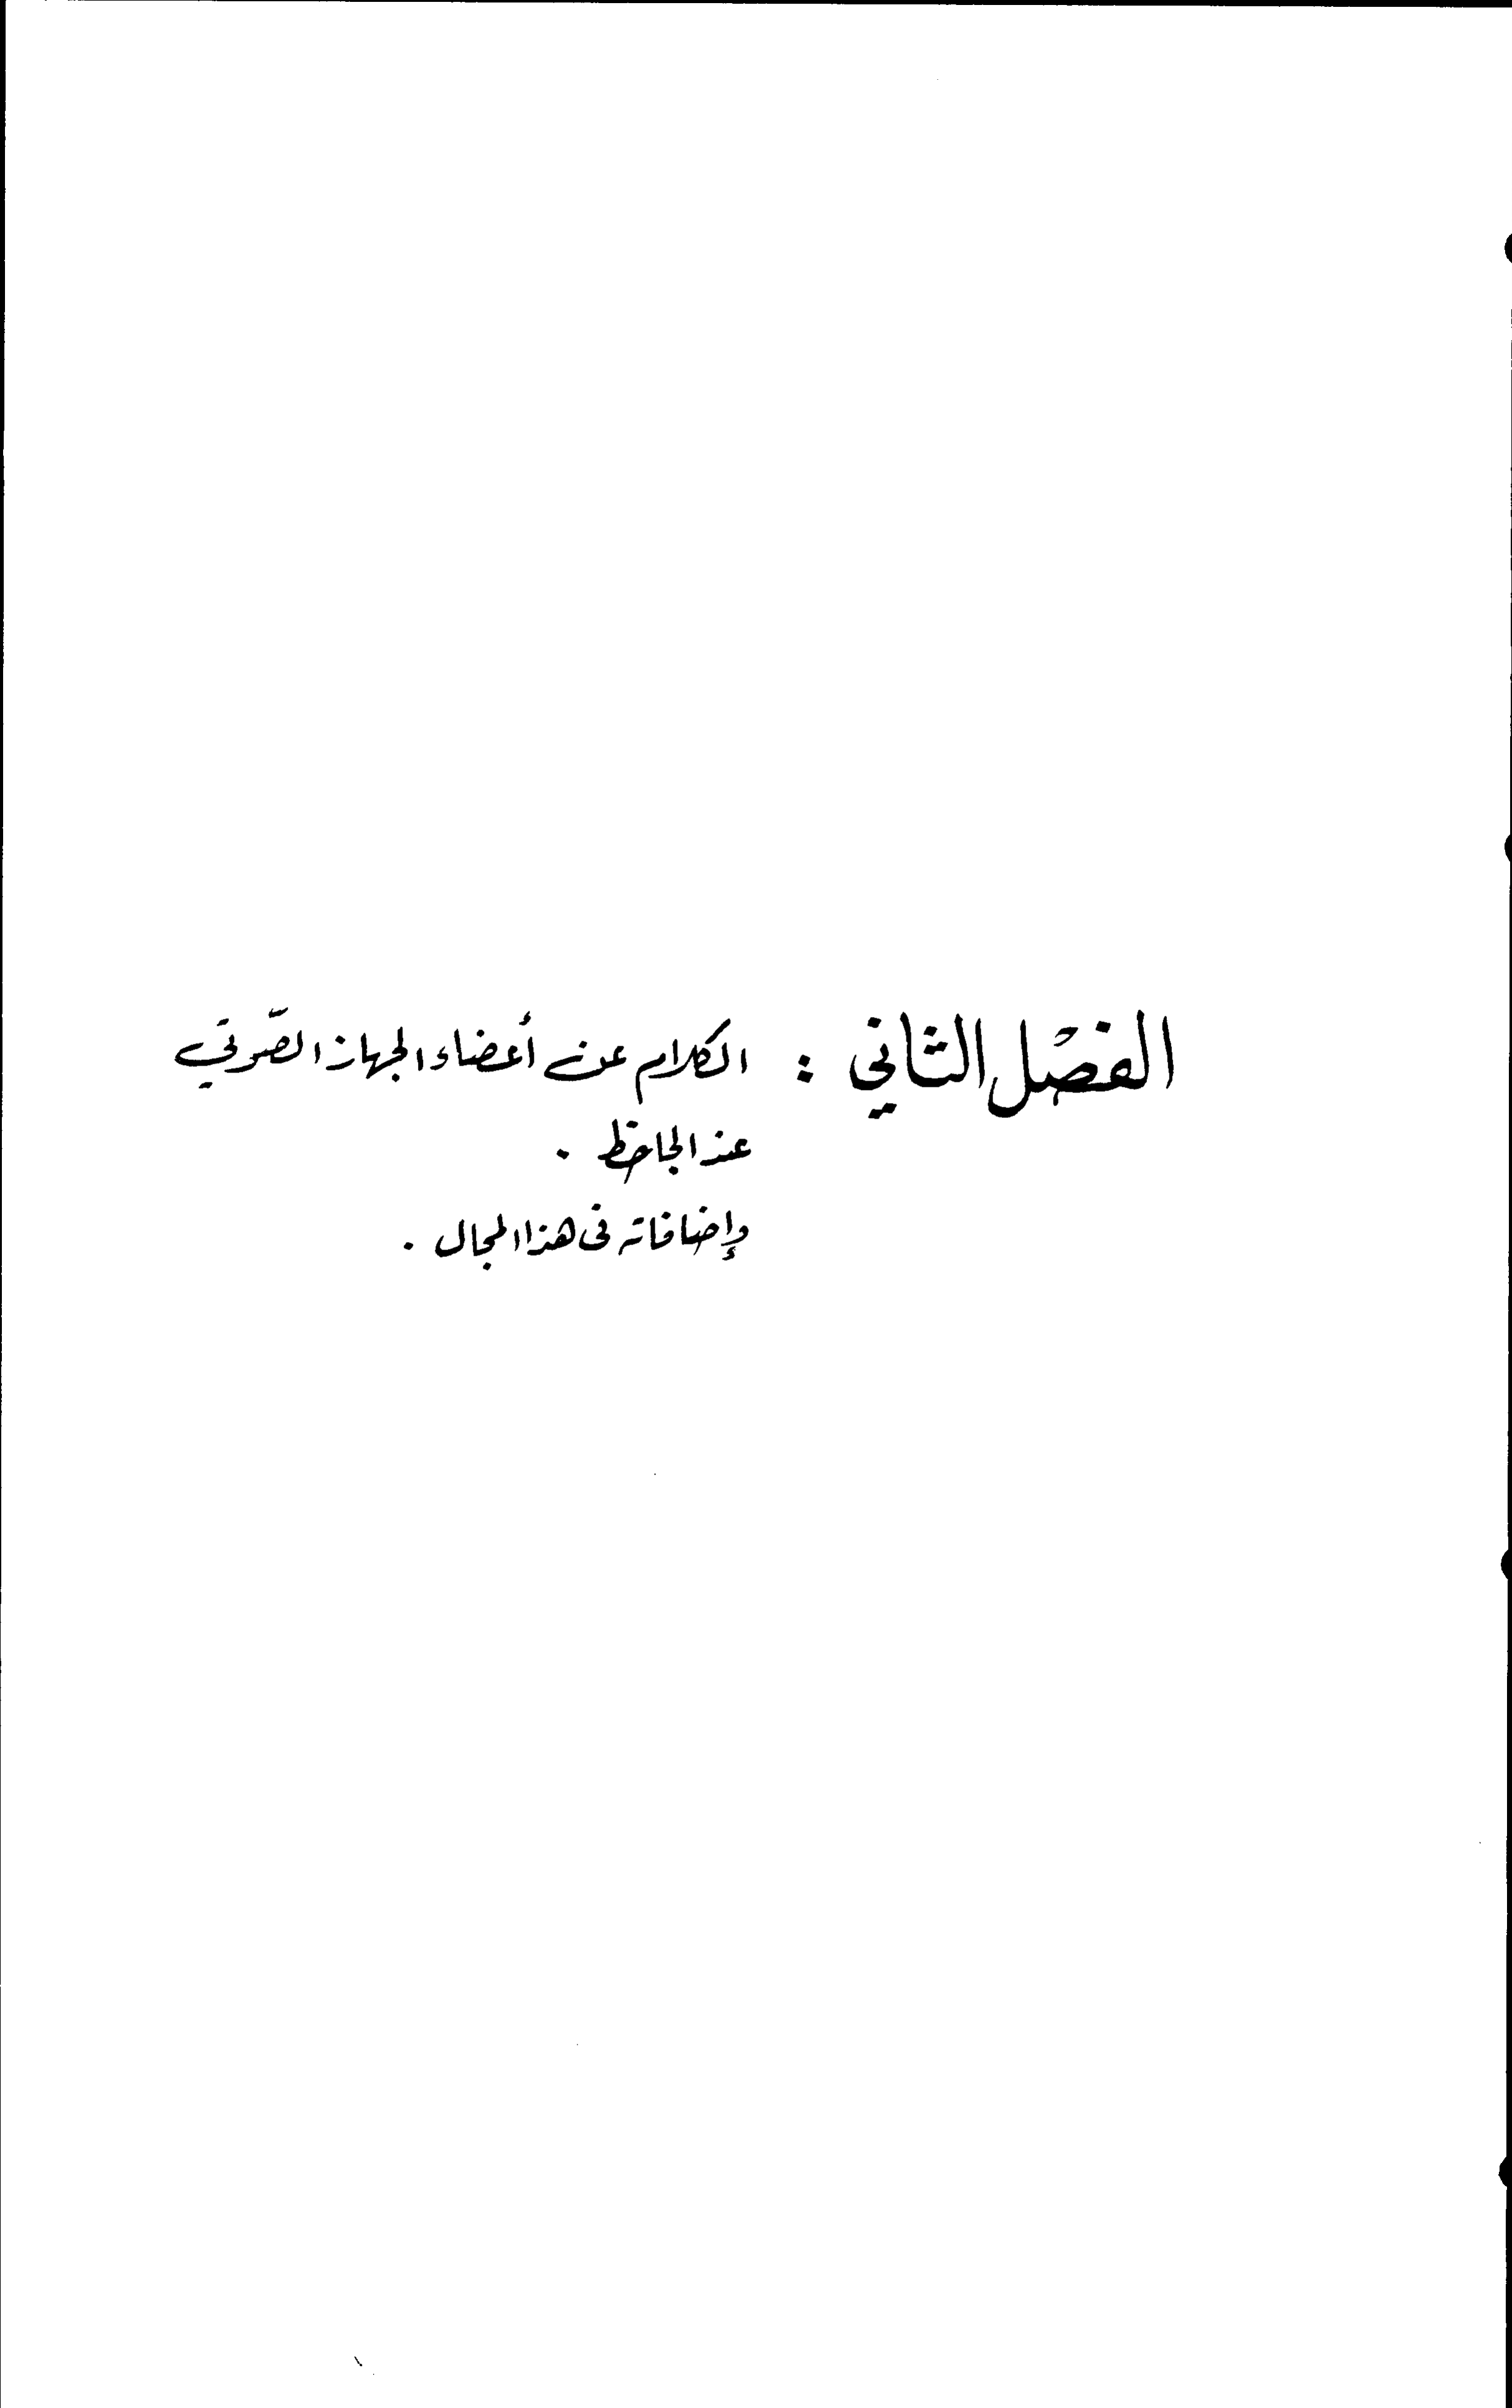 الفصْل الثاني : الكلام عن أعضاء الجهاز الصّوتي
عند الجاحظ .
وإضافاته فى هذا المجال .